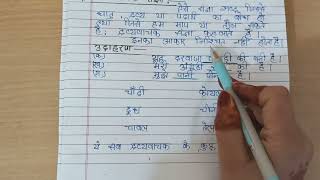 ऐसे संज्ञा शब्द जिनसे
धातु, द्रव्य या पदार्थ का बोध हो
तथा जिसे हम माप या तौल सकते
है। द्रव्यवाचक संज्ञा कहलाते है।
इनका आकार निश्चित नहीं होता है।
उदाहरण
यह दरवाजा की बनी है।
मेरी अंगूठी की है।
मुझे पानी है।
चाँदी
दूध
चावल
ये सब द्रव्यवाचक के कुछ